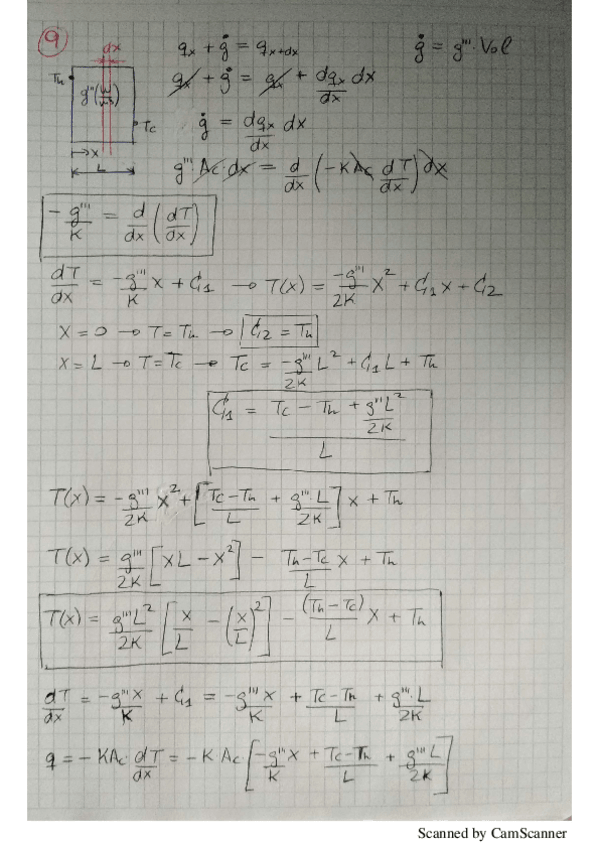 9
dx
Th
g''' (W/m³)
Tc
x
L
qx + ġ = qx+dx
ġ = g'''·Vol
qx + ġ = qx + dqx/dx dx
ġ = dqx/dx dx
g'''·Ac·dx = d/dx (-K Ac dT/dx) dx
-g'''/K = d/dx (dT/dx)
dT/dx = -g'''/K x + C1 → T(x) = -g'''/2K x² + C1x + C2
x = 0 → T = Th → C2 = Th
x = L → T = Tc → Tc = -g'''/2K L² + C1L + Th
C1 = (Tc - Th + g'''L²/2K)/L
T(x) = -g'''/2K x² + [Tc-Th/L + g'''L/2K] x + Th
T(x) = g'''/2K [xL - x²] - Th-Tc/L x + Th
T(x) = g'''L²/2K [x/L - (x/L)²] - (Th-Tc)/L x + Th
dT/dx = -g'''x/K + C1 = -g'''x/K + Tc-Th/L + g'''·L/2K
q = -KAc dT/dx = -K Ac [-g'''x/K + Tc-Th/L + g'''L/2K]
Scanned by CamScanner